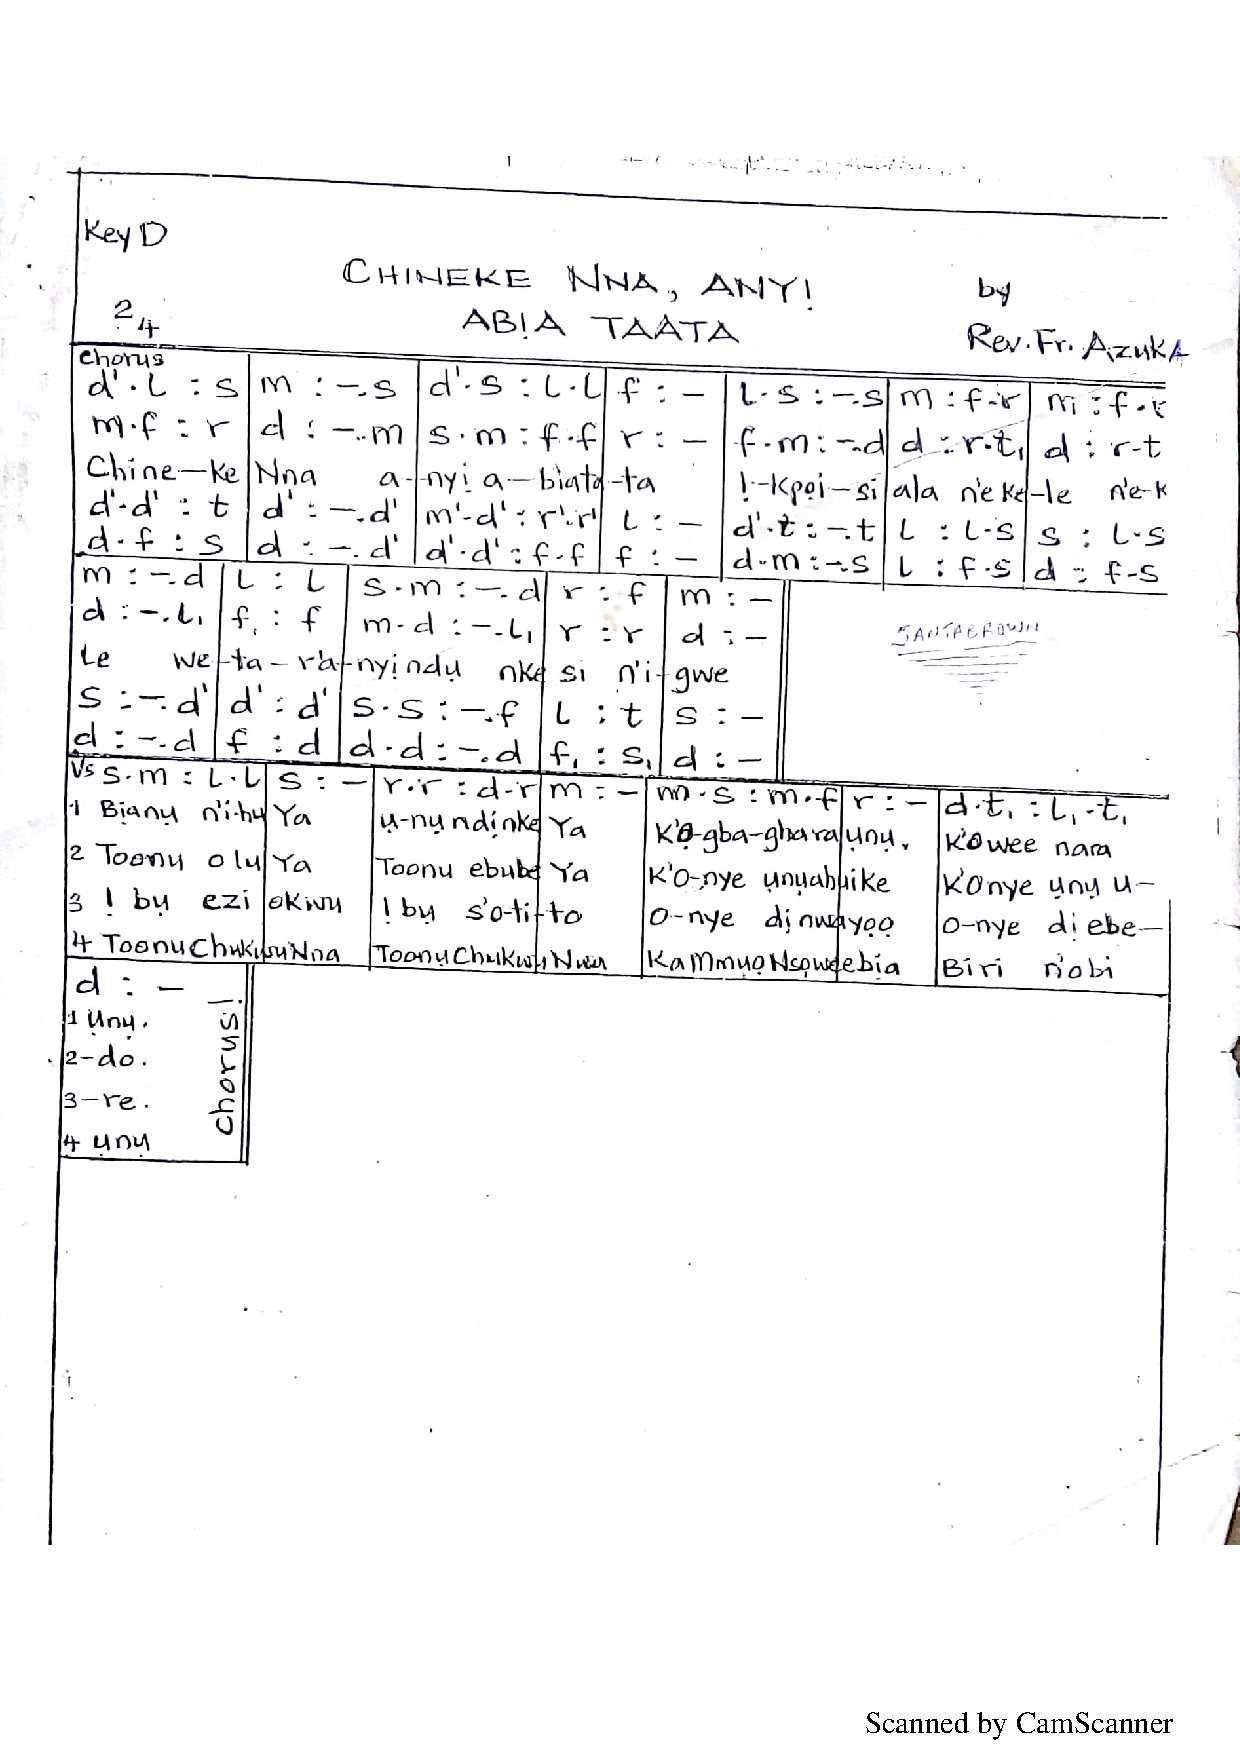 Key D
CHINEKE NNA, ANYỊ
ABỊA TAATA
by
Rev. Fr. AZUKA
2 4
Chorus
d'.L : s | m : -.s | d'.s : L.L | f : - | L.s : -.s | m : f.r | m : f.r
m.f : r | d : -.m | s.m : f.f | r : - | f.m : -.d | d : r.t, | d : r-t
Chine-ke | Nna a- | nyị a-bịata | -ta | Ị-kpọi-si | ala n'eke | -le n'e-k
d'.d' : t | d' : -.d' | m'.d' : r'.r' | L : - | d'.t : -.t | L : L.s | s : L.s
d.f : s | d : -.d' | d'.d' : f.f | f : - | d.m : -.s | L : f.s | d : f-s
m : -.d | L : L | s.m : -.d | r : f | m : -
d : -.L, | f, : f | m.d : -.L, | r : r | d : -
le we | -ta-ra | -nyị ndụ nke | si n'i | -gwe
SANTABROWN
s : -.d' | d' : d' | s.s : -.f | L : t | s : -
d : -.d | f : d | d.d : -.d | f, : s, | d : -
Vs s.m : L.L | s : - | r.r : d-r | m : - | m.s : m.f | r : - | d.t, : L,.t,
1 Bịanụ n'i-hu | Ya | ụ-nụ ndịnke | Ya | K'Ọ-gba-ghara | ụnụ, | K'Owee nara
2 Toonụ olu | Ya | Toonu ebube | Ya | K'O-nye ụnụ ahụ | ike | K'Onye ụnụ u-
3 Ị bụ ezi | okwu | Ị bụ s'o-ti | -to | O-nye dị nwa | yọọ | O-nye dị ebe-
4 Toonu Chukwu | Nna | Toonụ Chukwu | Nwa | Ka Mmụọ Nsọ wee | bịa | Biri n'obi
d : -
1 Ụnụ.
2 -do.
3 -re.
4 ụnụ
chorus!
Scanned by CamScanner